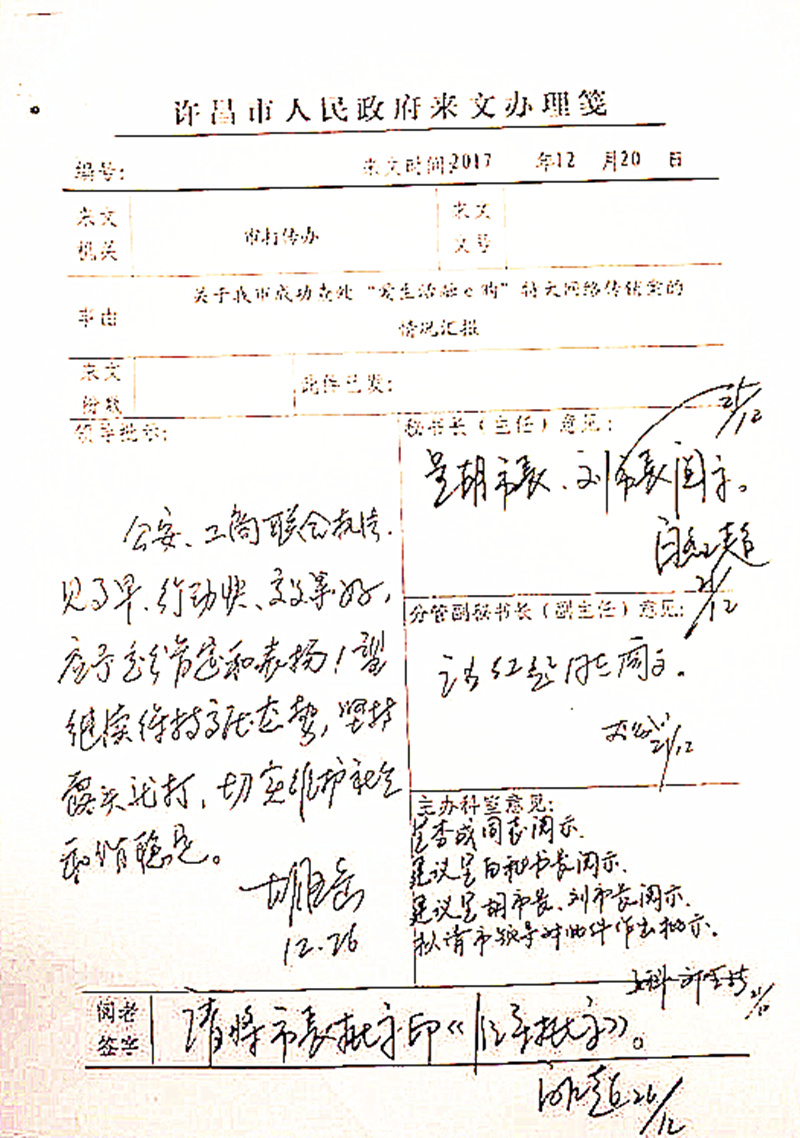 许昌市人民政府来文办理笺
编号: 来文时间:2017 年12 月20 日
来文机关 市打传办 来文文号
事由 关于我市成功查处“爱生活融e购”特大网络传销案的
情况汇报
来文份数 此件已发:
领导批示:
公安、工商联合执法,
见事早、行动快、效果好,
应予充分肯定和表扬!望
继续保持高压态势,坚持
露头就打,切实维护社会
和谐稳定。
12.26
秘书长(主任)意见:
21/12
呈胡市长、刘市长阅示。
21/12
分管副秘书长(副主任)意见:
请红超同志阅示。
21/12
主办科室意见:
呈李成同志阅示。
建议呈白秘书长阅示。
建议呈胡市长、刘市长阅示。
拟请市领导对此件作出批示。
21/12
阅者签字 请将市长批示印《领导批示》。
26/12